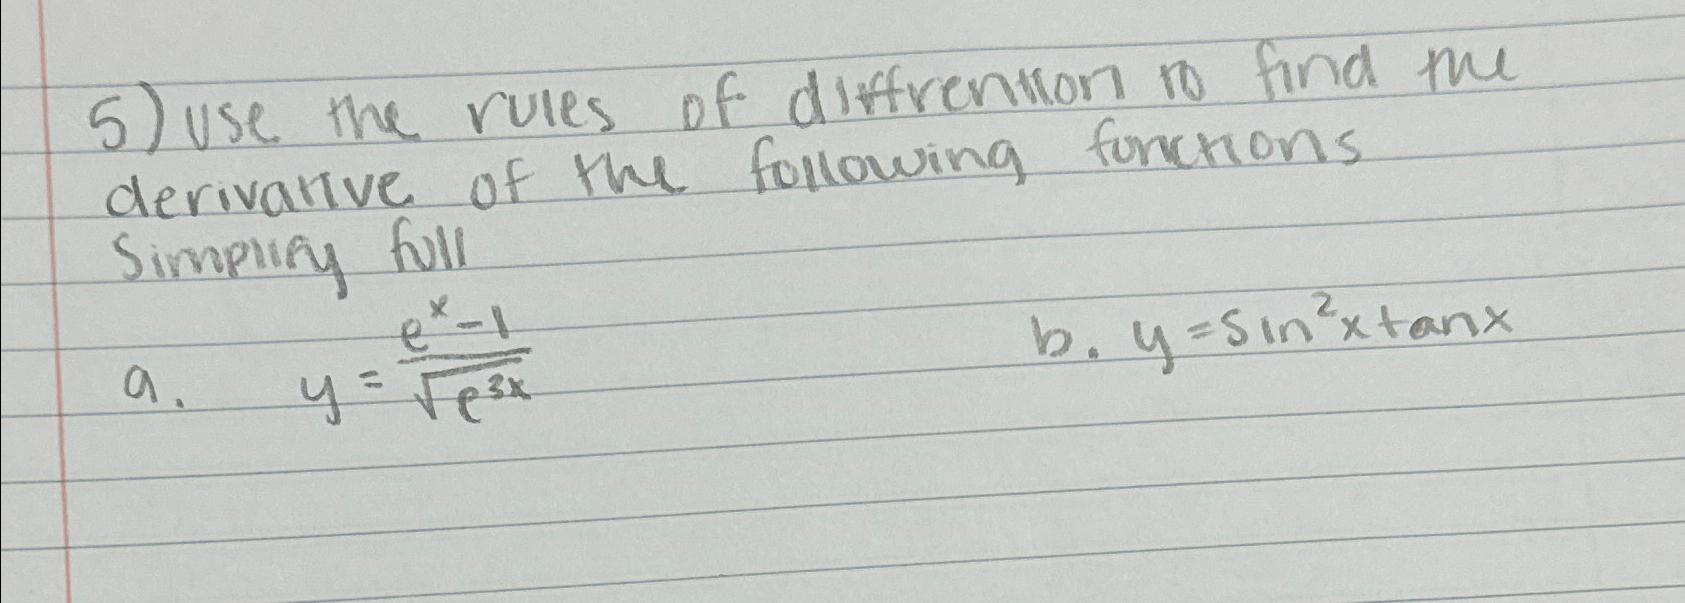 5) use the rules of diffrention to find the
derivative of the following functions
simplify full
a. y = \frac{e^x - 1}{\sqrt{e^{3x}}}
b. y = sin²x tanx